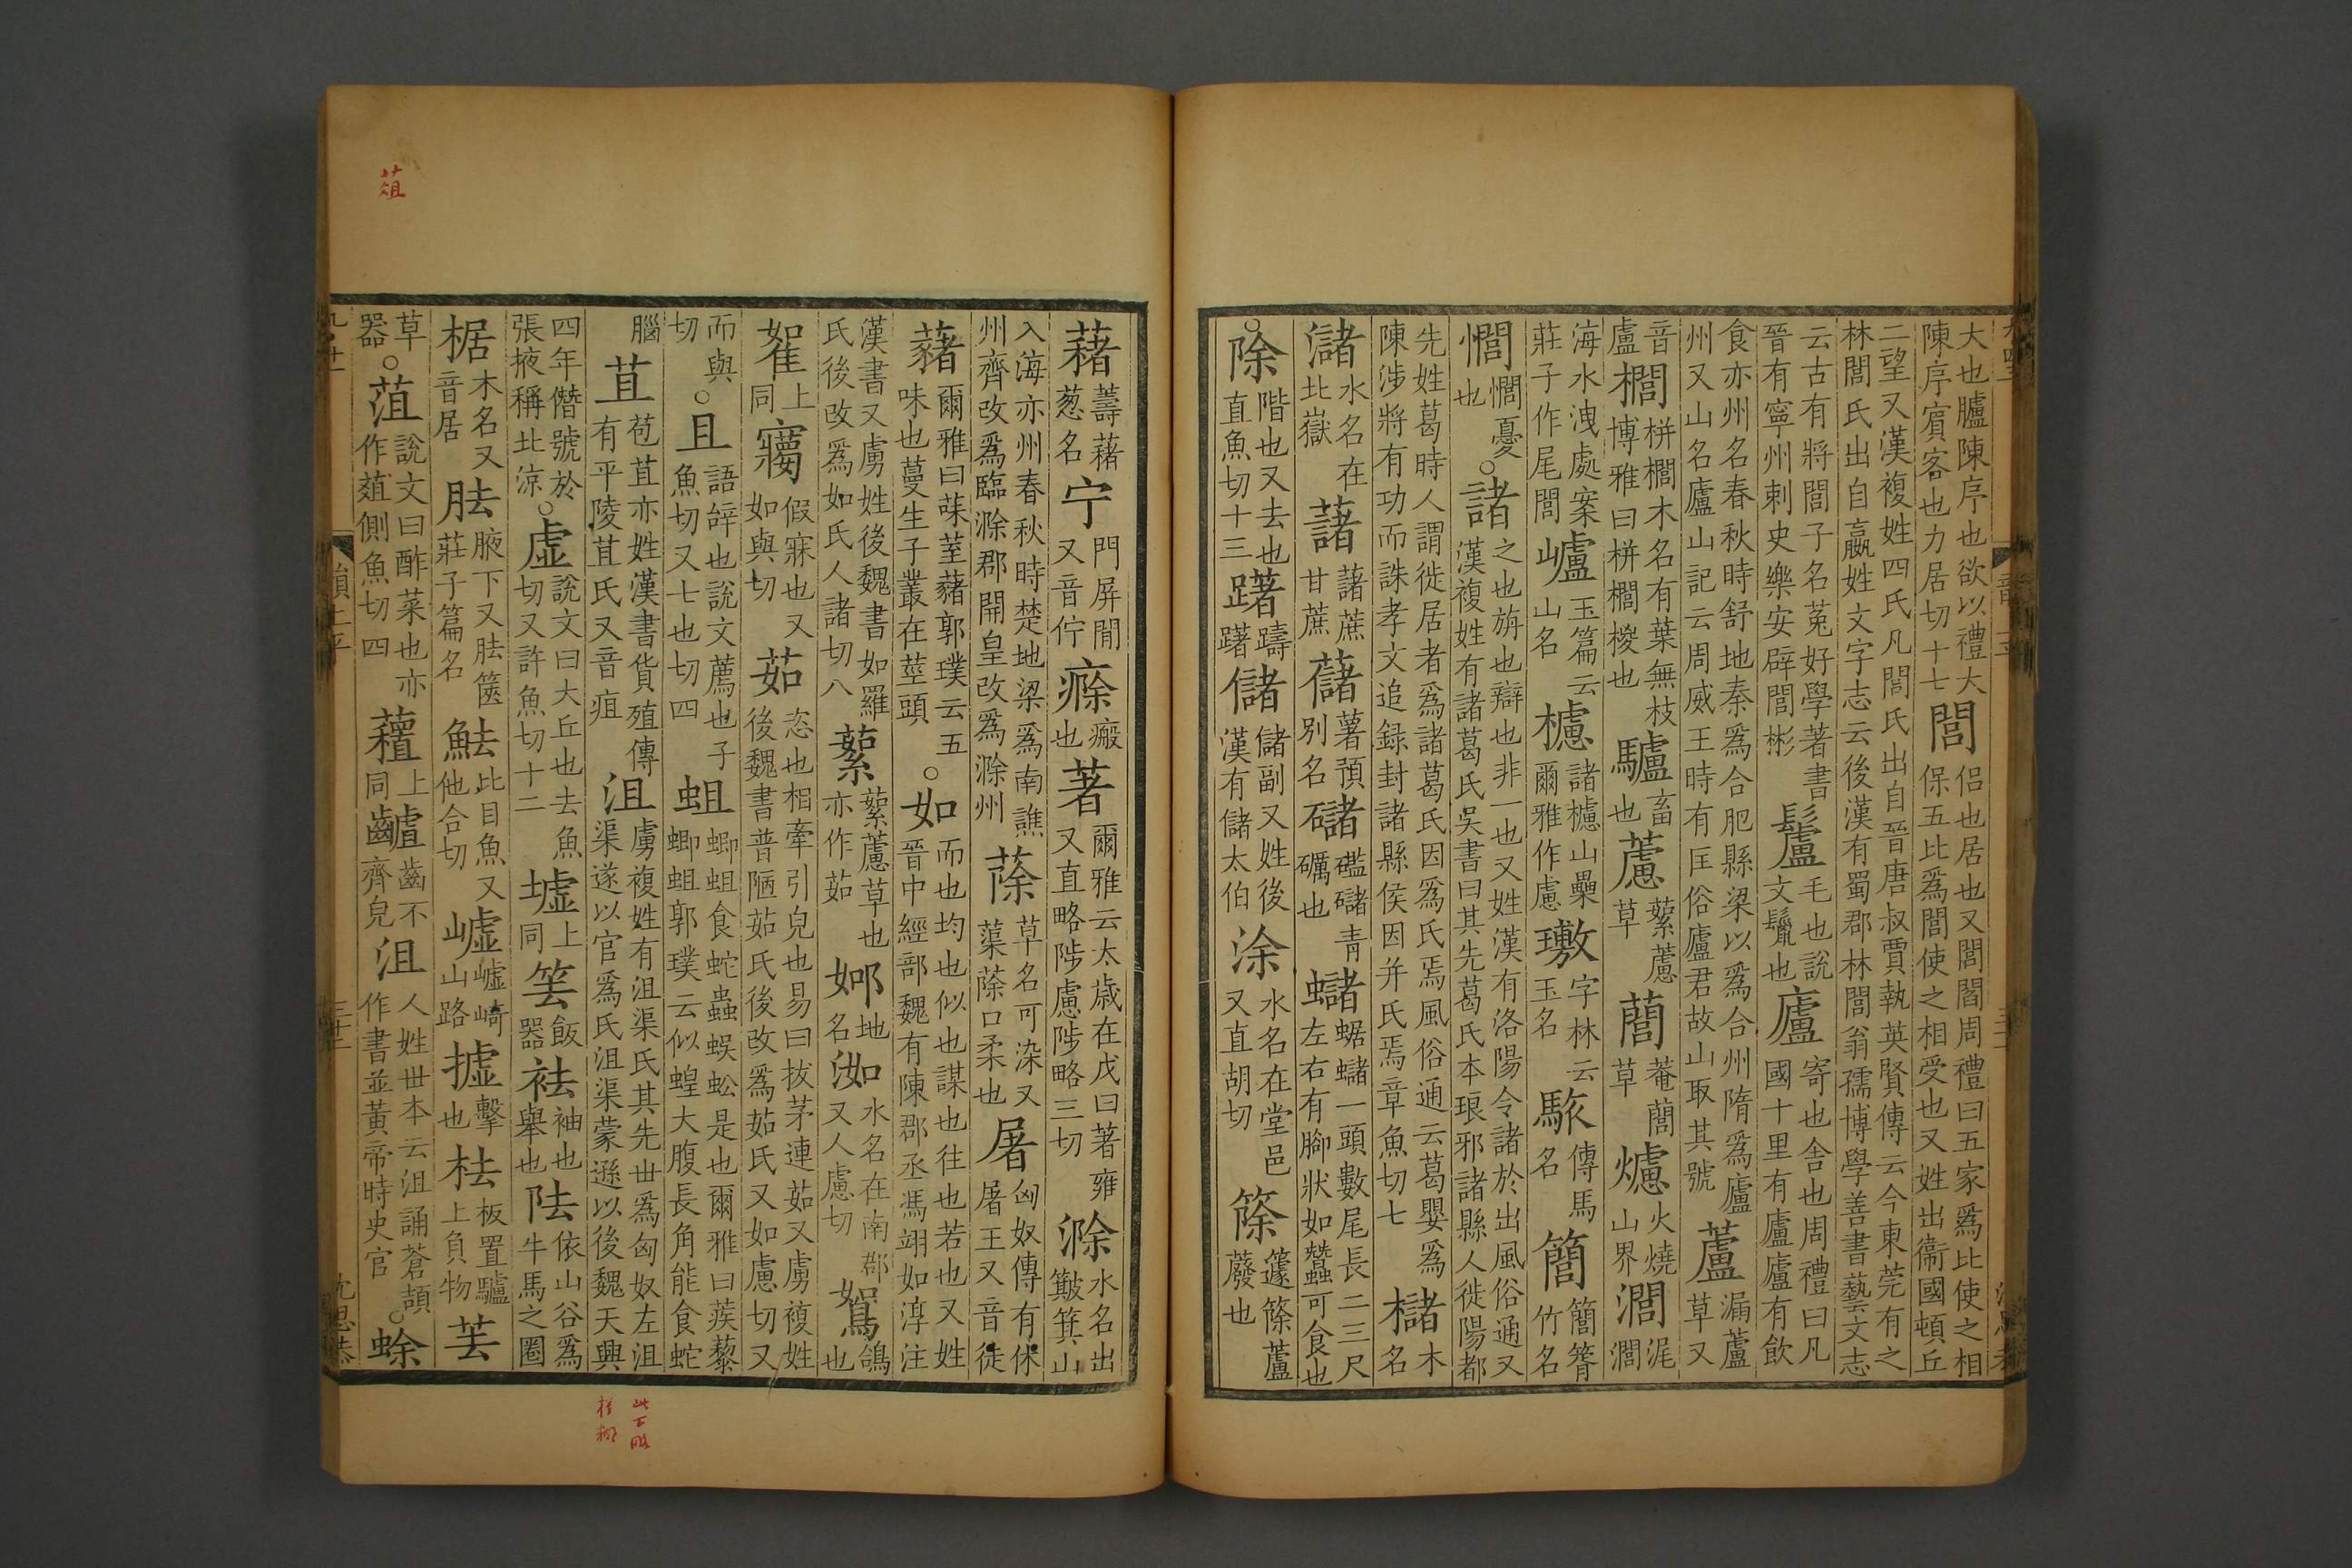 大也臚陳序也欲以禮大陳序賓客也力居切十七閭侶也居也又閭閻周禮曰五家爲比使之相保五比爲閭使之相受也又姓出衞國頓丘
二望又漢複姓四氏凡閭氏出自晉唐叔賈執英賢傳云今東莞有之林閭氏出自嬴姓文字志云後漢有蜀郡林閭翁孺博學善書藝文志
云古有將閭子名菟好學著書晉有寧州刺史樂安辟閭彬鬛毛也說文鬣也廬寄也舍也周禮曰凡國十里有廬廬有飲
食亦州名春秋時舒地秦爲合肥縣梁以爲合州隋爲廬州又山名廬山記云周威王時有匡俗廬君故山取其號蘆漏蘆草又
音盧櫚栟櫚木名有葉無枝博雅曰栟櫚椶也驢畜也藘蕠藘草䕡菴䕡草爈火燒山界
海水洩處案莊子作尾閭㠠玉篇云山名櫖諸櫖山櫐爾雅作慮璷字林云玉名傳馬名竹名
憂也○諸之也旃也辯也非一也又姓漢有洛陽令諸於出風俗通又漢複姓有諸葛氏吳書曰其先葛氏本琅邪諸縣人徙陽都
先姓葛時人謂徙居者爲諸葛氏因爲氏焉風俗通云葛嬰爲陳涉將有功而誅孝文追録封諸縣侯因并氏焉章魚切七櫧木名
瀦水名在北嶽藷藷蔗甘蔗䕽薯預別名礛䃴青礪也蠩蝫蠩一頭數尾長二三尺左右有腳狀如蠶可食也
○除階也又去也直魚切十三躇躊躇儲儲副又姓後漢有儲太伯涂水名在堂邑又直胡切篨蘧篨蘆蕟也
藸蕏藸葱名宁門屏閒又音佇瘀瘢也著爾雅云太歲在戊曰著雍又直略陟慮陟略三切滁水名出𪋤箕山
入海亦州春秋時楚地梁爲南譙州齊改爲臨滁郡開皇改爲滁州蒢草名可染又蕖蒢口柔也屠匈奴傳有休屠王又音徒
藸爾雅曰菋荎藸郭璞云五味也蔓生子叢在莖頭○如而也均也似也謀也往也若也又姓晉中經部魏有陳郡丞馮翊如淳注
漢書又虜姓後魏書如羅氏後改爲如氏人諸切八蕠蕠藘草也亦作茹㚷地名洳水名在南郡又人慮切鴽鴿也
上同假寐也又如與切茹恣也相牽引皃也易曰拔茅連茹又虜複姓後魏書普陋茹氏後改爲茹氏又如慮切又
而與切○且語辝也說文薦也子魚切又七也切四蛆蝍蛆食蛇蟲蜈蚣是也爾雅曰蒺藜蝍蛆郭璞云似蝗大腹長角能食蛇
腦苴苞苴亦姓漢書貨殖傳有平陵苴氏又音疽沮虜複姓有沮渠氏其先世爲匈奴左沮渠遂以官爲氏沮渠蒙遜以後魏天興
四年僭號於張掖稱北涼○虛說文曰大丘也去魚切又許魚切十二墟上同筶飯器袪袖也舉也阹依山谷爲牛馬之圈
椐木名又音居胠腋下又胠篋莊子篇名魼比目魚又他合切嶇崎山路㨿擊也板置驢上負物
草器○菹說文曰酢菜也亦作䔃側魚切四上同齒不齊皃沮人姓世本云沮誦蒼頡作書並黃帝時史官○蜍
葅
此下